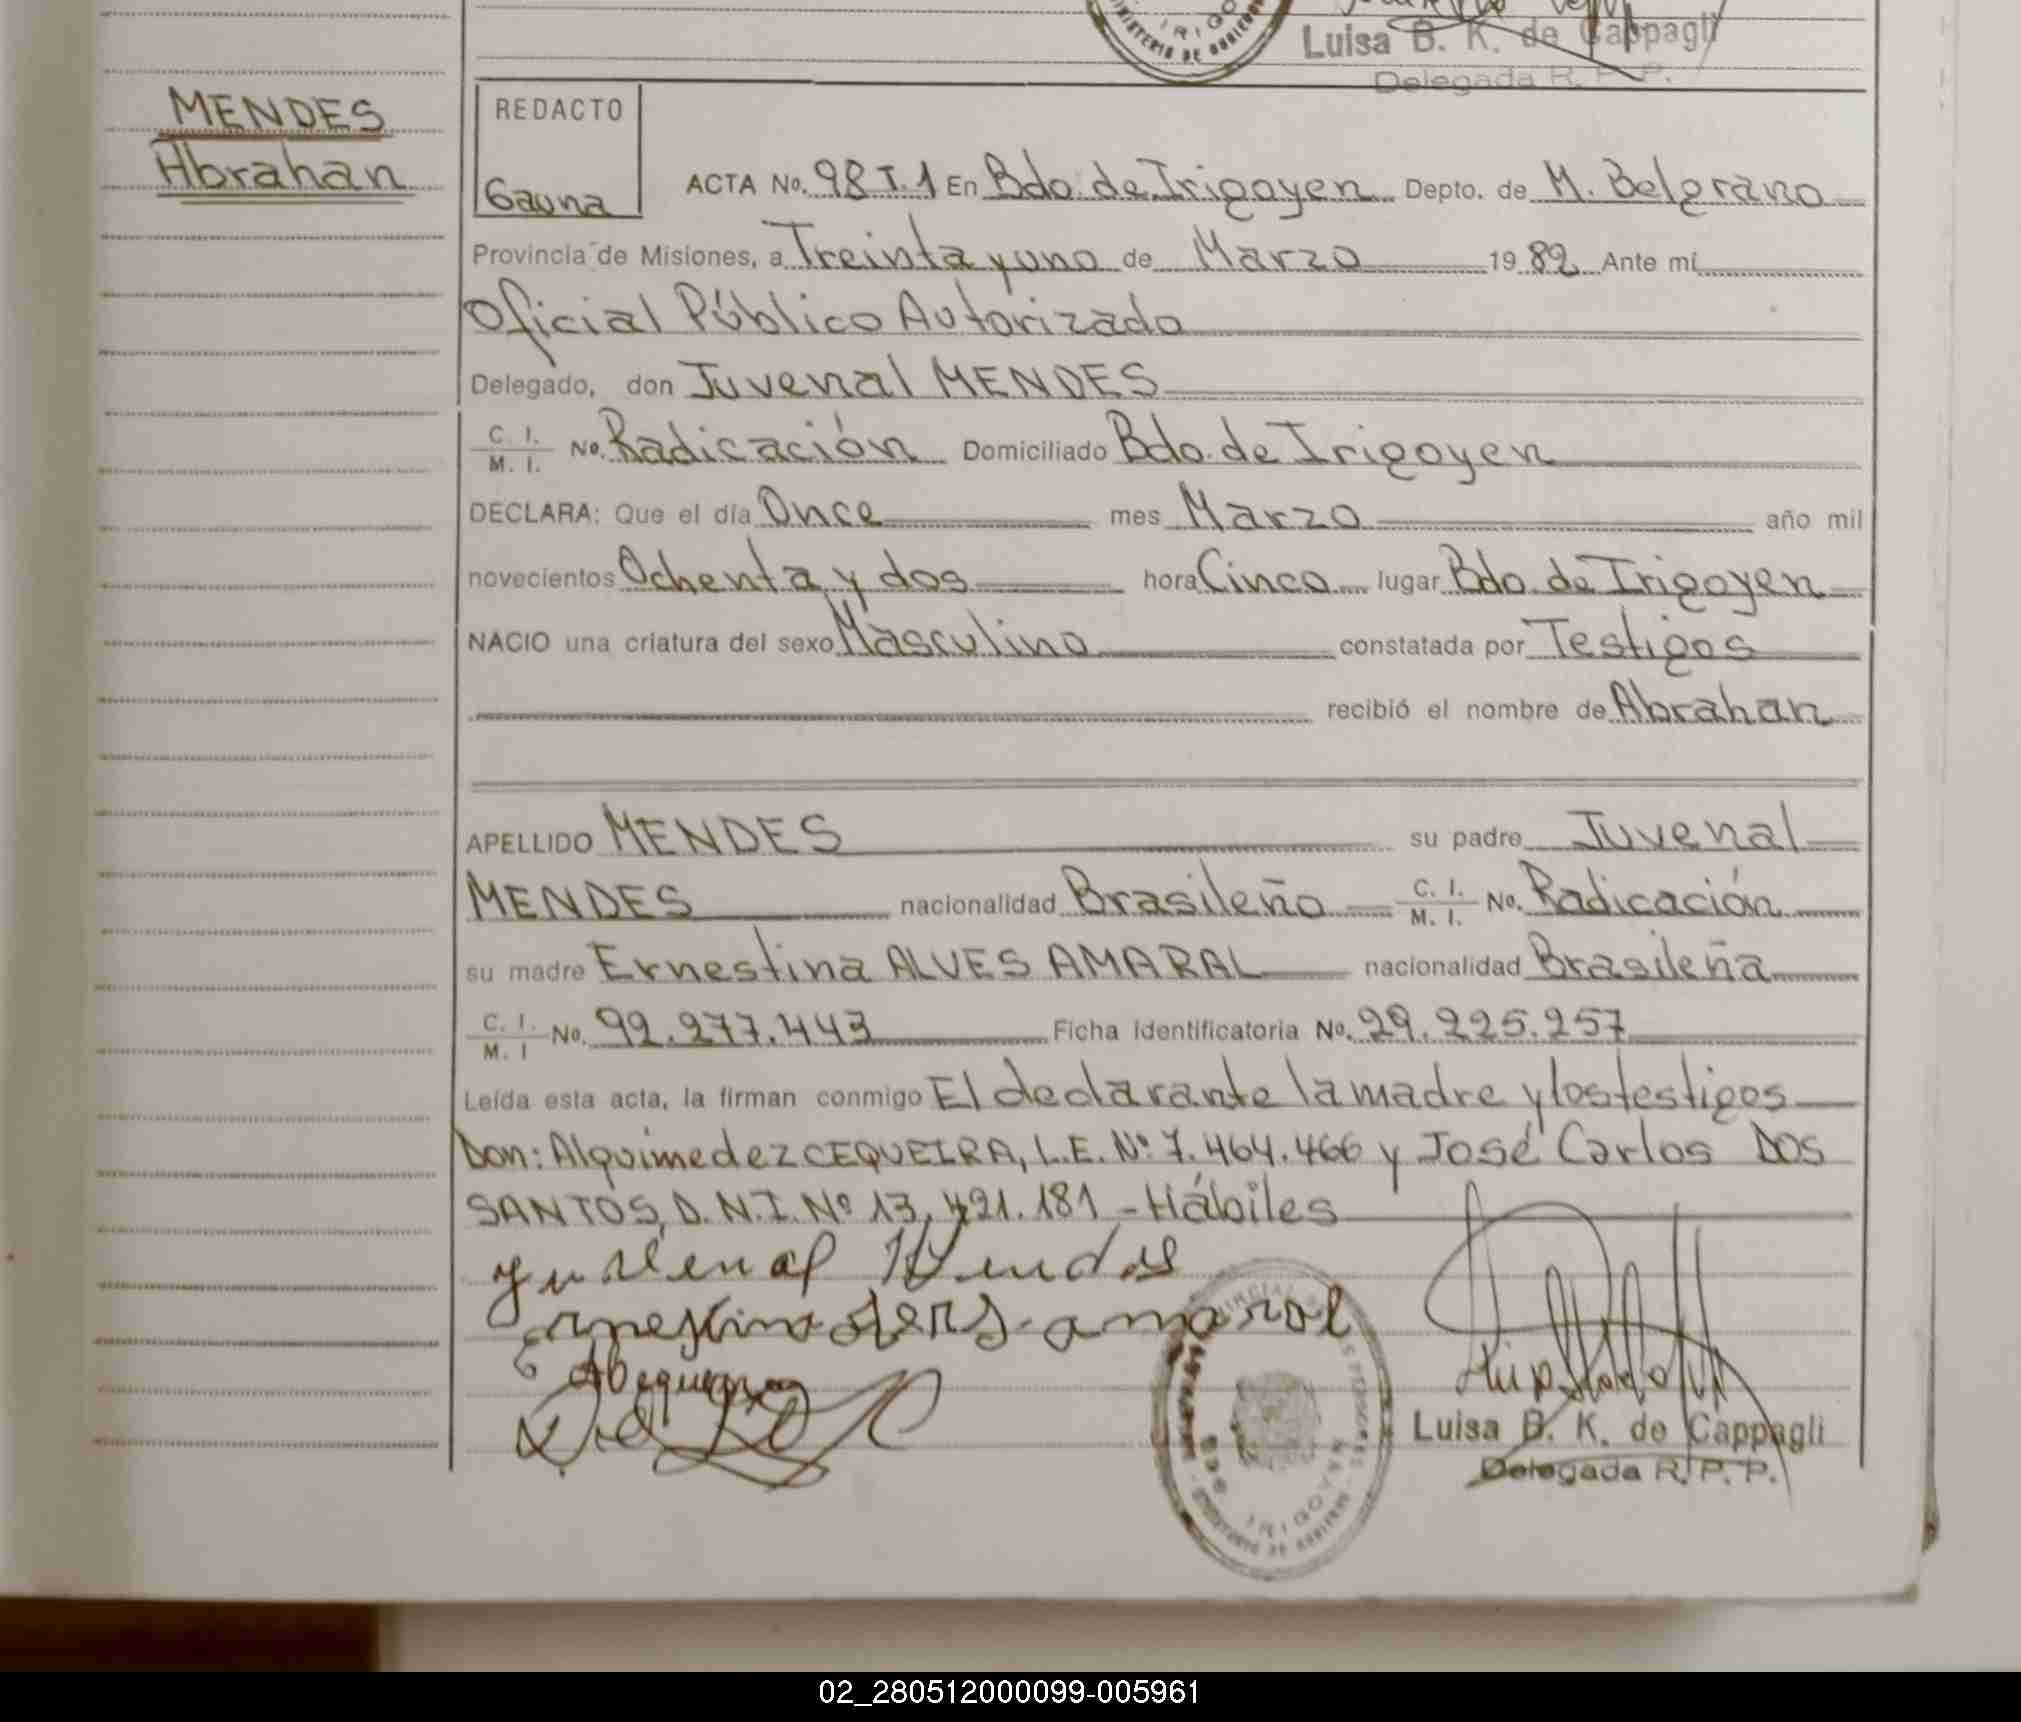 Luisa B. K. de Cappagli
Delegada R. P. P.
MENDES
Abrahan
REDACTO
Gauna
ACTA No. 98 T.1 En Bdo. de Irigoyen Depto. de M. Belgrano
Provincia de Misiones, a Treinta y uno de Marzo 1982 Ante mí
Oficial Público Autorizado
Delegado, don Juvenal MENDES
C. I. / M. I. No. Radicación Domiciliado Bdo. de Irigoyen
DECLARA: Que el día Once mes Marzo año mil
novecientos Ochenta y dos hora Cinco lugar Bdo. de Irigoyen
NACIO una criatura del sexo Masculino constatada por Testigos
recibió el nombre de Abrahan
APELLIDO MENDES su padre Juvenal
MENDES nacionalidad Brasileño C. I. / M. I. No. Radicación
su madre Ernestina ALVES AMARAL nacionalidad Brasileña
C. I. / M. I No. 92.277.443 Ficha Identificatoria No. 29.225.257
Leída esta acta, la firman conmigo El declarante la madre y los testigos
Don: Alquimedez CEQUEIRA, L.E. Nº 7.464.466 y José Carlos DOS
SANTOS, D.N.I. Nº 13.421.181 - Hábiles
Luisa B. K. de Cappagli
Delegada R. P. P.
02_280512000099-005961